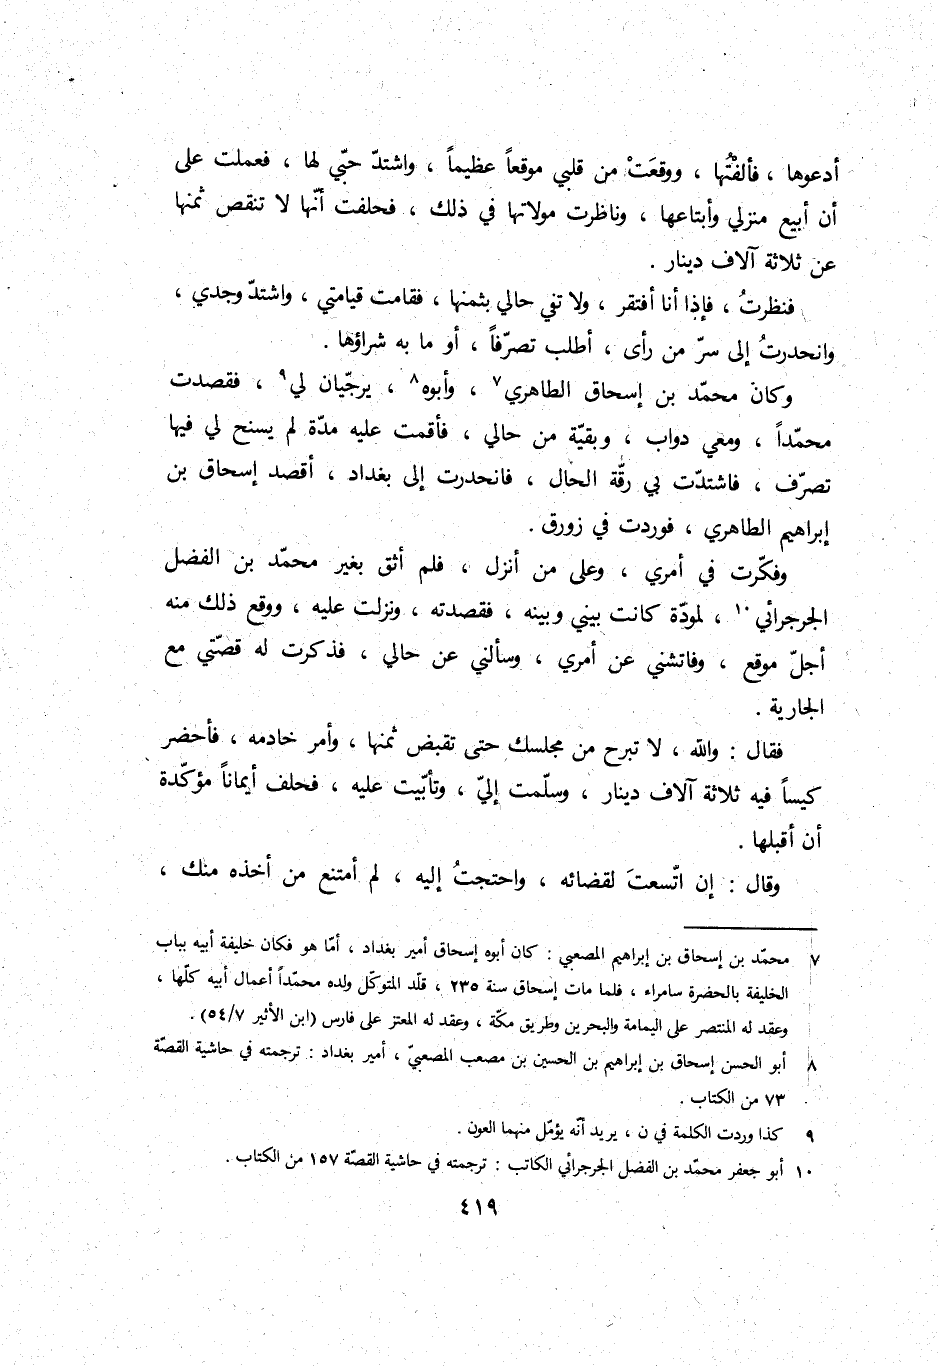 أدعوها ، فألفْتُها ، ووقعَتْ من قلبي موقعاً عظيماً ، واشتدّ حبّي لها ، فعملت على
أن أبيع منزلي وأبتاعها ، وناظرت مولاتها في ذلك ، فحلفت أنّها لا تنقص ثمنها
عن ثلاثة آلاف دينار .
فنظرتُ ، فإذا أنا أفتقر ، ولا تفي حالي بثمنها ، فقامت قيامتي ، واشتدّ وجدي ،
وانحدرتُ إلى سرّ من رأى ، أطلب تصرّفاً ، أو ما به شراؤها .
وكان محمّد بن إسحاق الطاهري٧ ، وأبوه٨ ، يرجّيان لي٩ ، فقصدت
محمّداً ، ومعي دواب ، وبقيّة من حالي ، فأقمت عليه مدّة لم يسنح لي فيها
تصرّف ، فاشتدّت بي رقّة الحال ، فانحدرت إلى بغداد ، أقصد إسحاق بن
إبراهيم الطاهري ، فوردت في زورق .
وفكّرت في أمري ، وعلى من أنزل ، فلم أثق بغير محمّد بن الفضل
الجرجرائي١٠ ، لمودّة كانت بيني وبينه ، فقصدته ، ونزلت عليه ، ووقع ذلك منه
أجلّ موقع ، وفاتشني عن أمري ، وسألني عن حالي ، فذكرت له قصّتي مع
الجارية .
فقال : والله ، لا تبرح من مجلسك حتى تقبض ثمنها ، وأمر خادمه ، فأحضر
كيساً فيه ثلاثة آلاف دينار ، وسلّمت إليّ ، وتأبّيت عليه ، فحلف أيماناً مؤكّدة
أن أقبلها .
وقال : إن اتّسعتَ لقضائه ، واحتجتُ إليه ، لم أمتنع من أخذه منك ،
٧ محمّد بن إسحاق بن إبراهيم المصعبي : كان أبوه إسحاق أمير بغداد ، أمّا هو فكان خليفة أبيه بباب
الخليفة بالحضرة سامراء ، فلما مات إسحاق سنة ٢٣٥ ، قلّد المتوكّل ولده محمّداً أعمال أبيه كلّها ،
وعقد له المنتصر على اليمامة والبحرين وطريق مكّة ، وعقد له المعتز على فارس (ابن الأثير ٥٤/٧) .
٨ أبو الحسن إسحاق بن إبراهيم بن الحسين بن مصعب المصعبيّ ، أمير بغداد : ترجمته في حاشية القصّة
٧٣ من الكتاب .
٩ كذا وردت الكلمة في ن ، يريد أنّه يؤمّل منهما العون .
١٠ أبو جعفر محمّد بن الفضل الجرجرائي الكاتب : ترجمته في حاشية القصّة ١٥٧ من الكتاب .
٤١٩